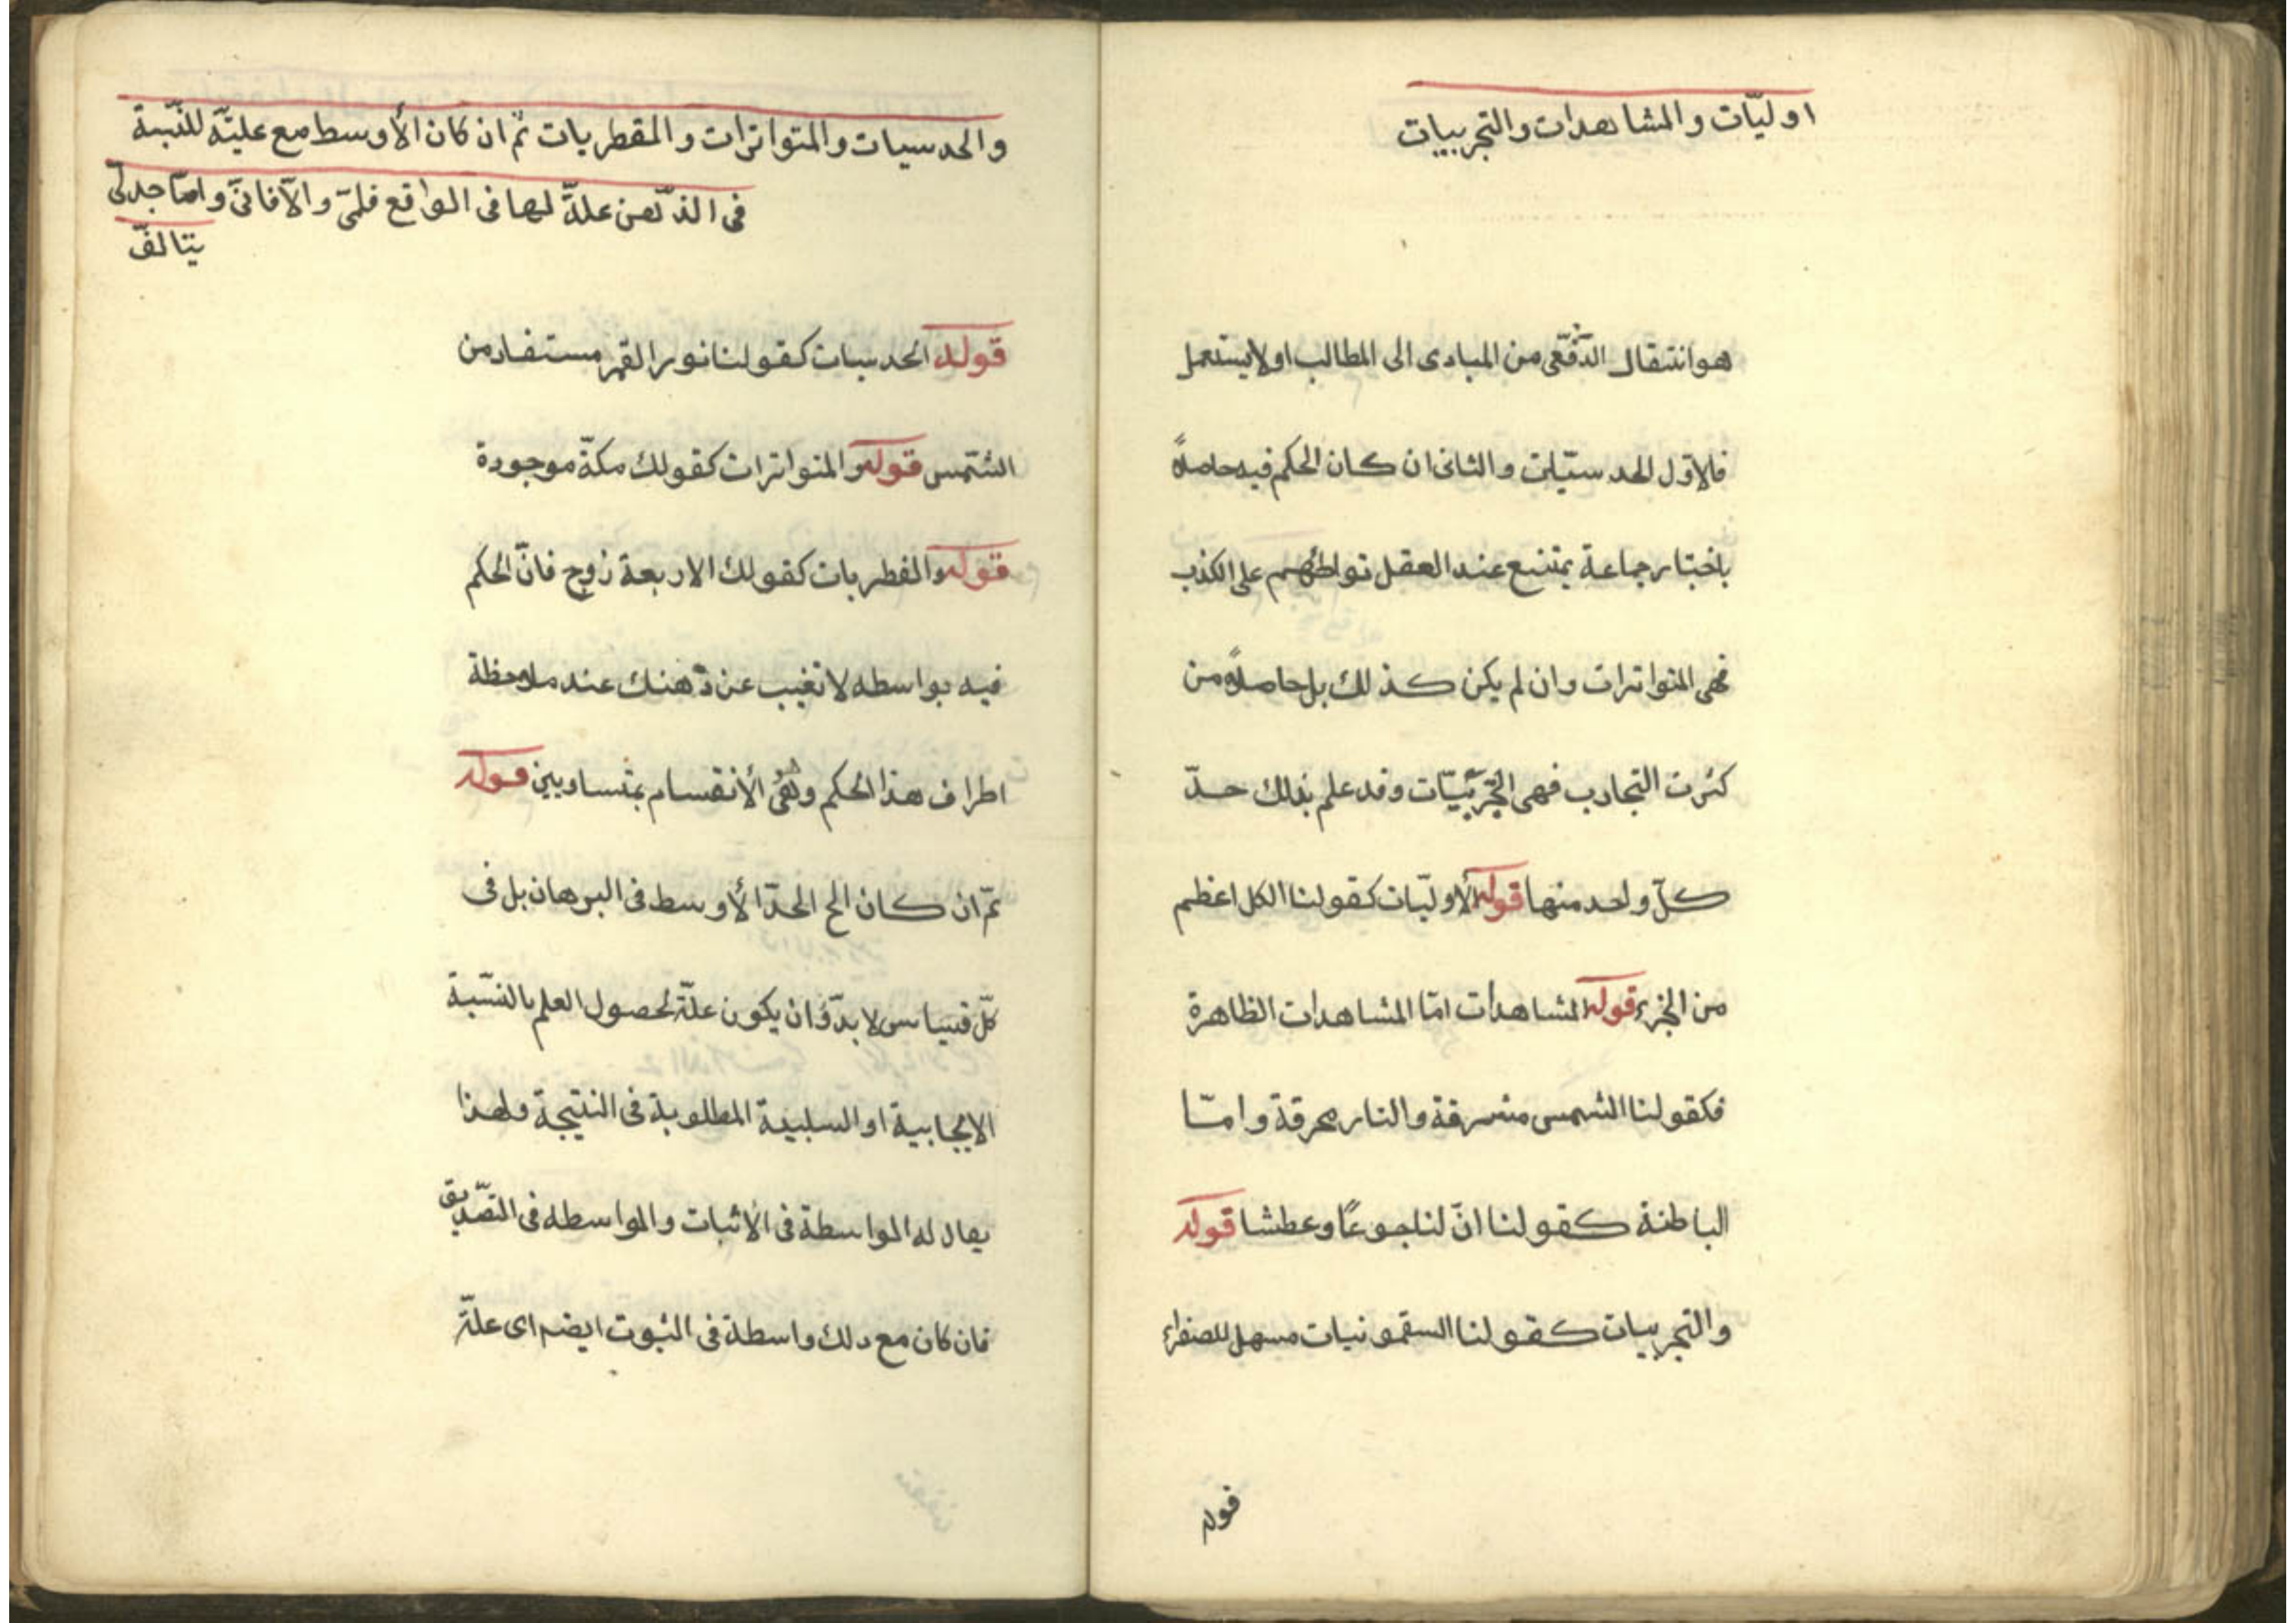 اوليّات والمشاهدات والتجربيات
هو انتقال الدّفعّى من المبادى الى المطالب او لا يستعمل
فالاوّل الحدسيّات والثانى ان كان الحكم فيه حاصلاً
باخبتار جماعة يمتنع عند العقل تواطئهم على الكذب
فهى المتواترات وان لم يكن كذلك بل حاصلاً من
كثرت التجارب فهى التجربيّات وقد علم بذلك حدّ
كلّ واحد منها قوله الأوليّات كقولنا الكل اعظم
من الجزء قوله المشاهدات امّا المشاهدات الظاهرة
فكقولنا الشمس مشرقة والنار محرقة وامّا
الباطنة كقولنا انّ لنا جوعًا وعطشا قوله
والتجربيات كقولنا السقمونيات مسهل للصفراء
قوله
والحدسيات والمتواترات والمقطريات ثمّ ان كان الأوسط مع عليتّه للنّسبة
فى الذّهن علةً لها فى الواقع فلمىّ والآفانىّ وامّا جدلىّ
يتالف
قوله الحدسيات كقولنا نور القمر مستفاد من
الشّمس قوله والمتواترات كقولك مكّة موجودة
قوله والفطريات كقولك الاربعة زوج فانّ الحكم
فيه بواسطه لا تغيب عن ذهنك عند ملاحظة
اطراف هذا الحكم وهى الأنقسام بمتساويين قوله
ثمّ ان كان الخ الحدّ الأوسط فى البرهان بل فى
كلّ قياس لا بدّ وان يكون علّة لحصول العلم بالنسّبة
الايجابية او السلبية المطلوبة فى النتيجة ولهذا
يقال له الواسطة فى الأثبات والواسطه فى التصّديق
فان كان مع ذلك واسطة فى الثبوت ايضم اى علّة